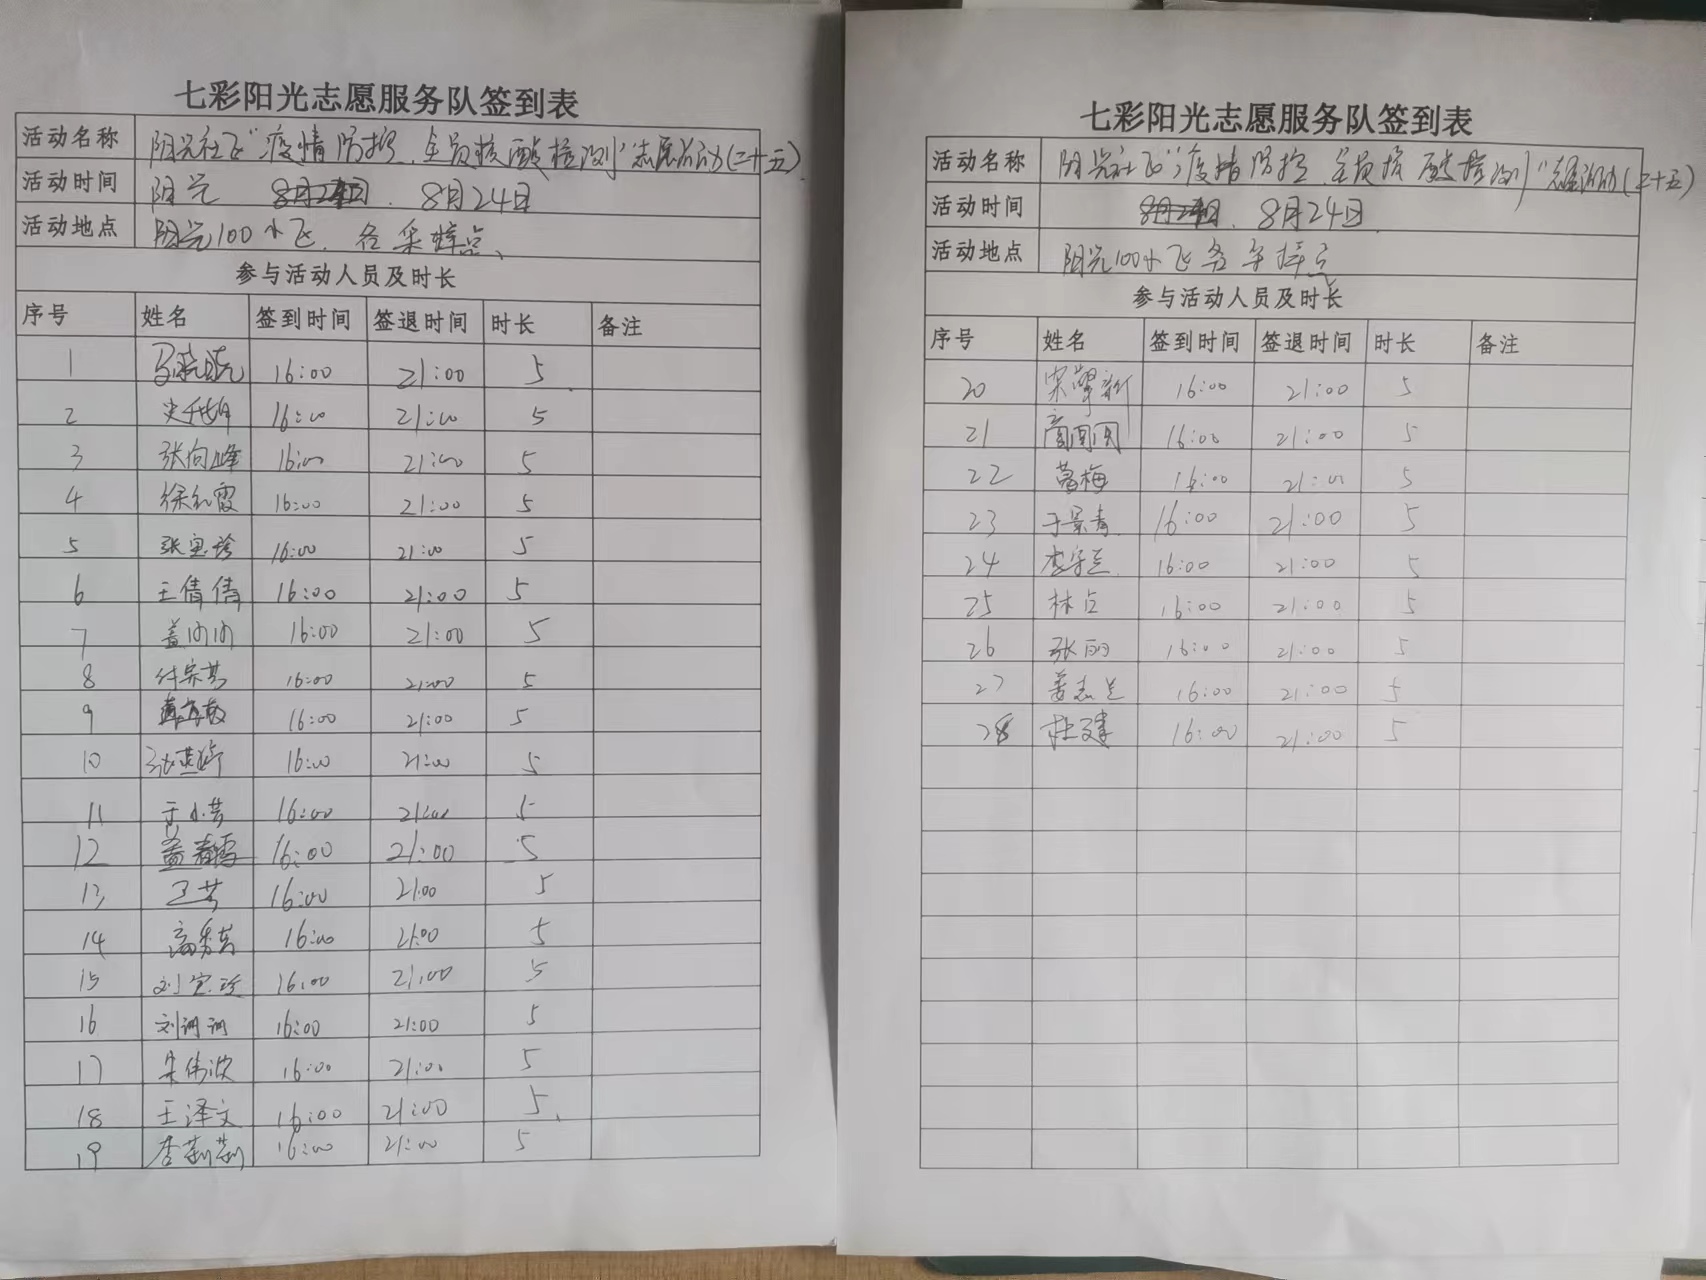 七彩阳光志愿服务队签到表
活动名称 阳光社区"疫情防控、全员核酸检测"志愿活动(二十五)
活动时间 阳光 8月24日
活动地点 阳光100小区、各采样点、
参与活动人员及时长
序号 姓名 签到时间 签退时间 时长 备注
1 16:00 21:00 5
2 16:00 21:00 5
3 张向峰 16:00 21:00 5
4 徐红霞 16:00 21:00 5
5 张宝珍 16:00 21:00 5
6 王倩倩 16:00 21:00 5
7 16:00 21:00 5
8 付宗芳 16:00 21:00 5
9 16:00 21:00 5
10 16:00 21:00 5
11 于小芳 16:00 21:00 5
12 盖春雪 16:00 21:00 5
13 卫芳 16:00 21:00 5
14 高秀芸 16:00 21:00 5
15 刘宝珍 16:00 21:00 5
16 刘训训 16:00 21:00 5
17 朱伟波 16:00 21:00 5
18 王泽文 16:00 21:00 5
19 李莉莉 16:00 21:00 5
七彩阳光志愿服务队签到表
活动名称 阳光社区"疫情防控、全员核酸检测"志愿活动(二十五)
活动时间 8月24日
活动地点 阳光100小区各采样点
参与活动人员及时长
序号 姓名 签到时间 签退时间 时长 备注
20 16:00 21:00 5
21 商圆圆 16:00 21:00 5
22 葛梅 16:00 21:00 5
23 于景青 16:00 21:00 5
24 16:00 21:00 5
25 16:00 21:00 5
26 张丽 16:00 21:00 5
27 姜志兰 16:00 21:00 5
28 杜建 16:00 21:00 5